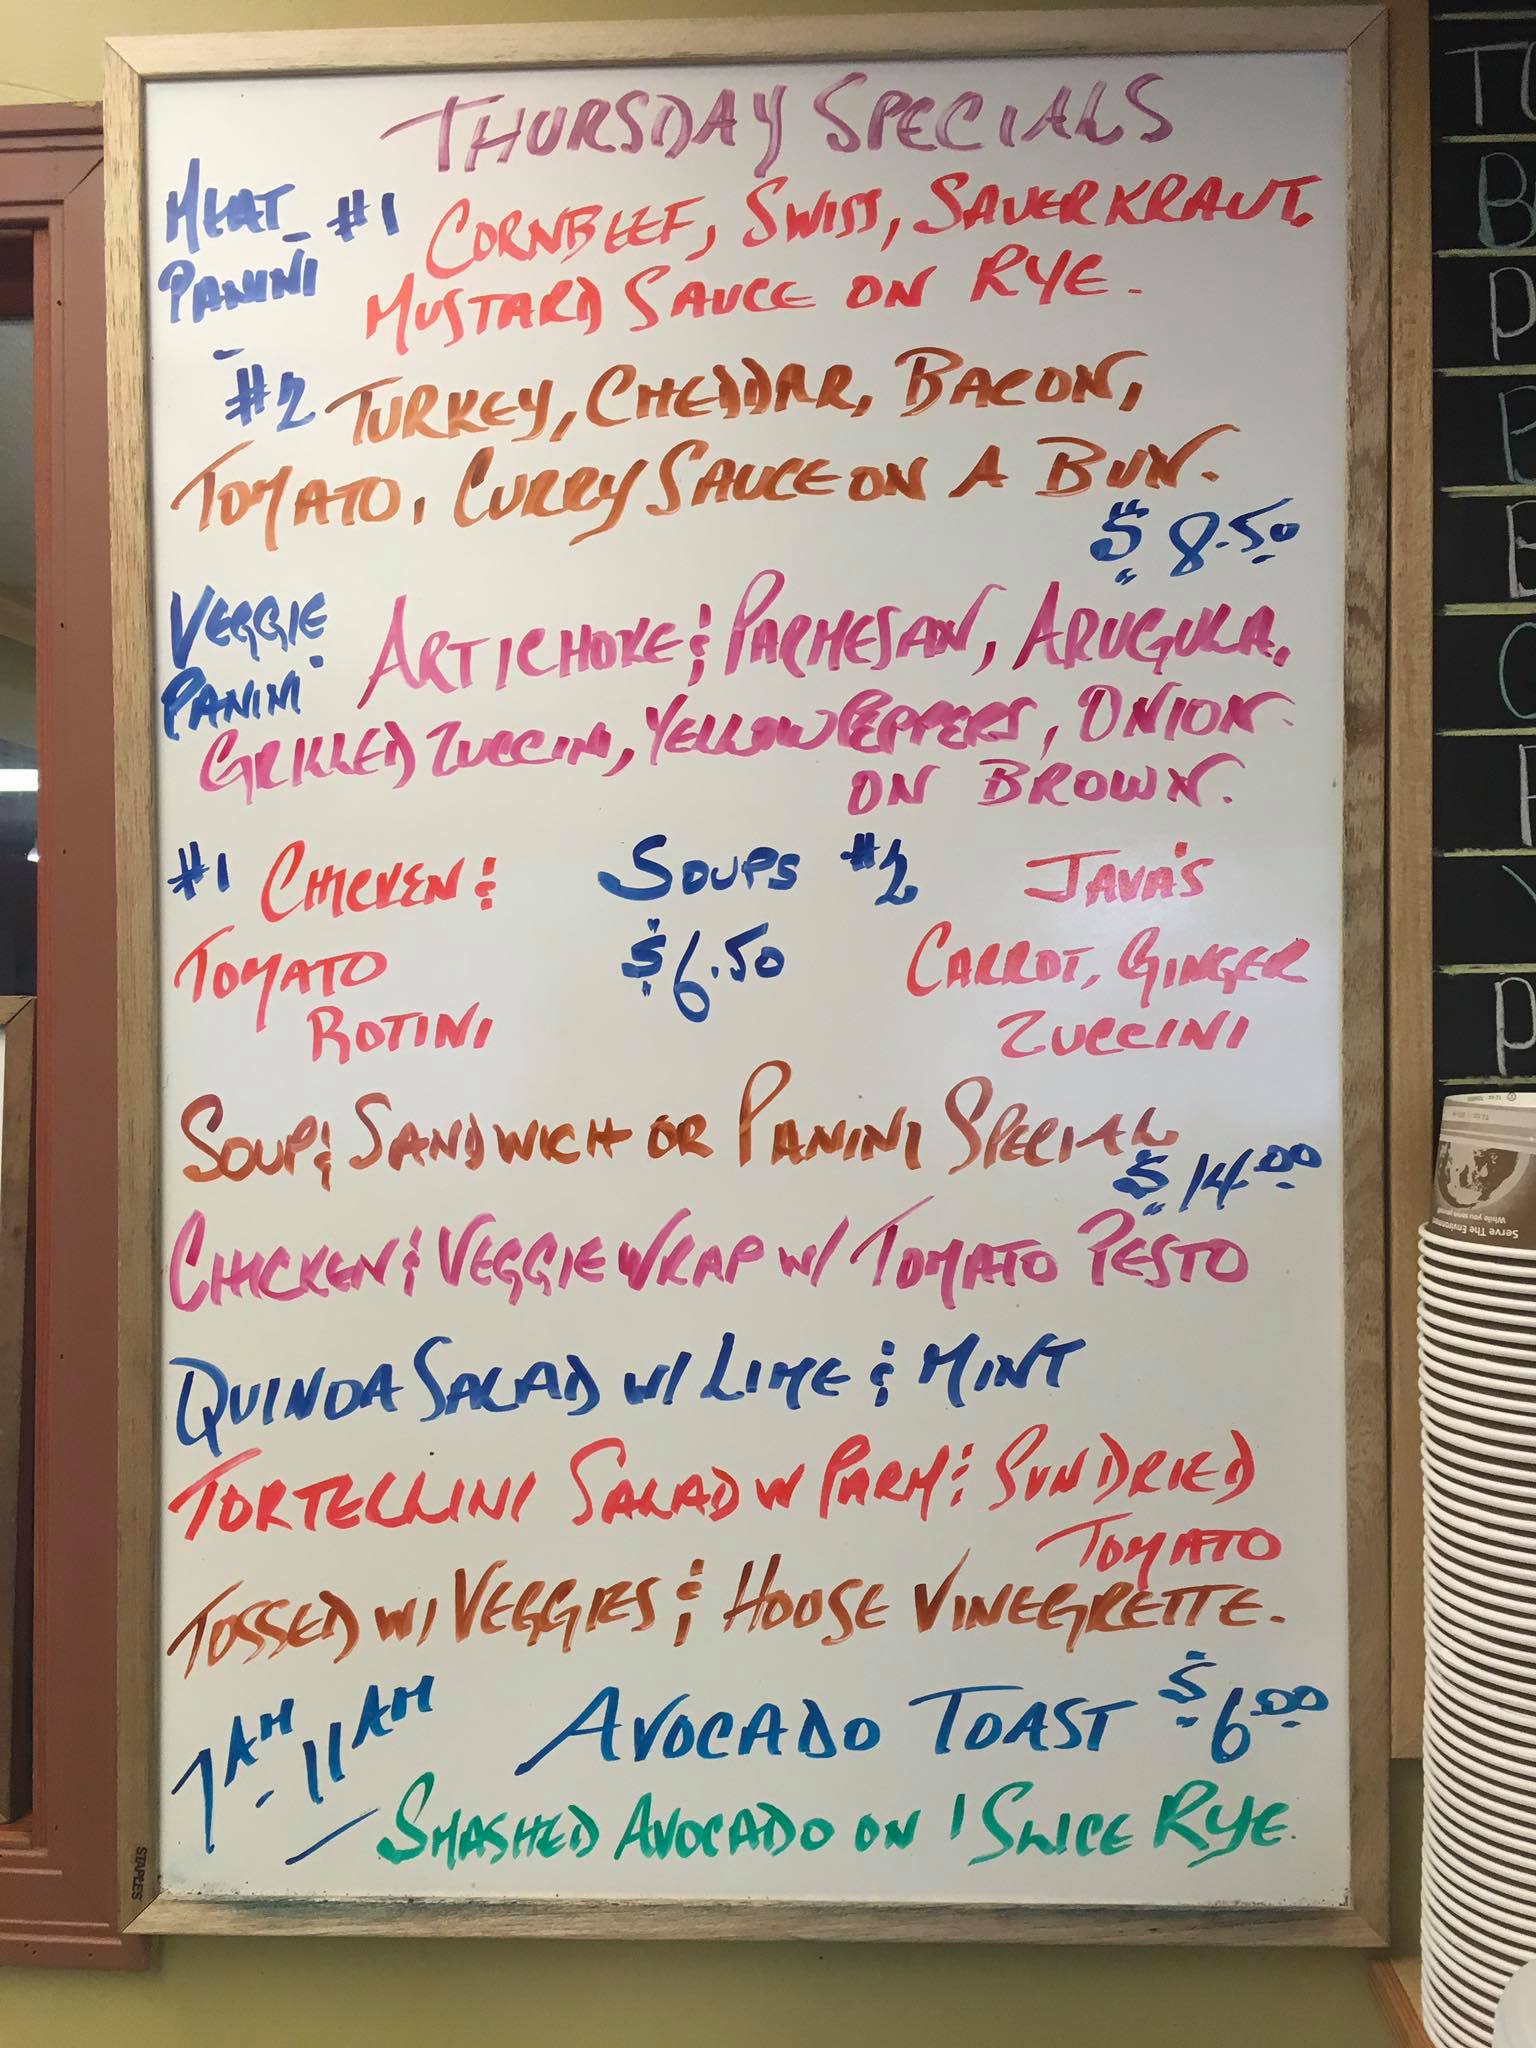 THURSDAY SPECIALS
MEAT PANINI #1 CORNBEEF, SWISS, SAUERKRAUT,
MUSTARD SAUCE ON RYE.
#2 TURKEY, CHEDDAR, BACON,
TOMATO, CURRY SAUCE ON A BUN.
$8.50
VEGGIE PANINI ARTICHOKE & PARMESAN, ARUGULA,
GRILLED ZUCCINI, YELLOW PEPPERS, ONION
ON BROWN.
#1 CHICKEN &
TOMATO
ROTINI
SOUPS
$6.50
#2 JAVA'S
CARROT, GINGER
ZUCCINI
SOUP & SANDWICH OR PANINI SPECIAL
$14.00
CHICKEN & VEGGIE WRAP W/ TOMATO PESTO
QUINOA SALAD W/ LIME & MINT
TORTELLINI SALAD W PARM & SUNDRIED
TOMATO
TOSSED W/ VEGGIES & HOUSE VINEGRETTE.
7AM - 11AM AVOCADO TOAST $6.00
SMASHED AVOCADO ON 1 SLICE RYE.
STAPLES
Serve The Environment
While you serve yourself